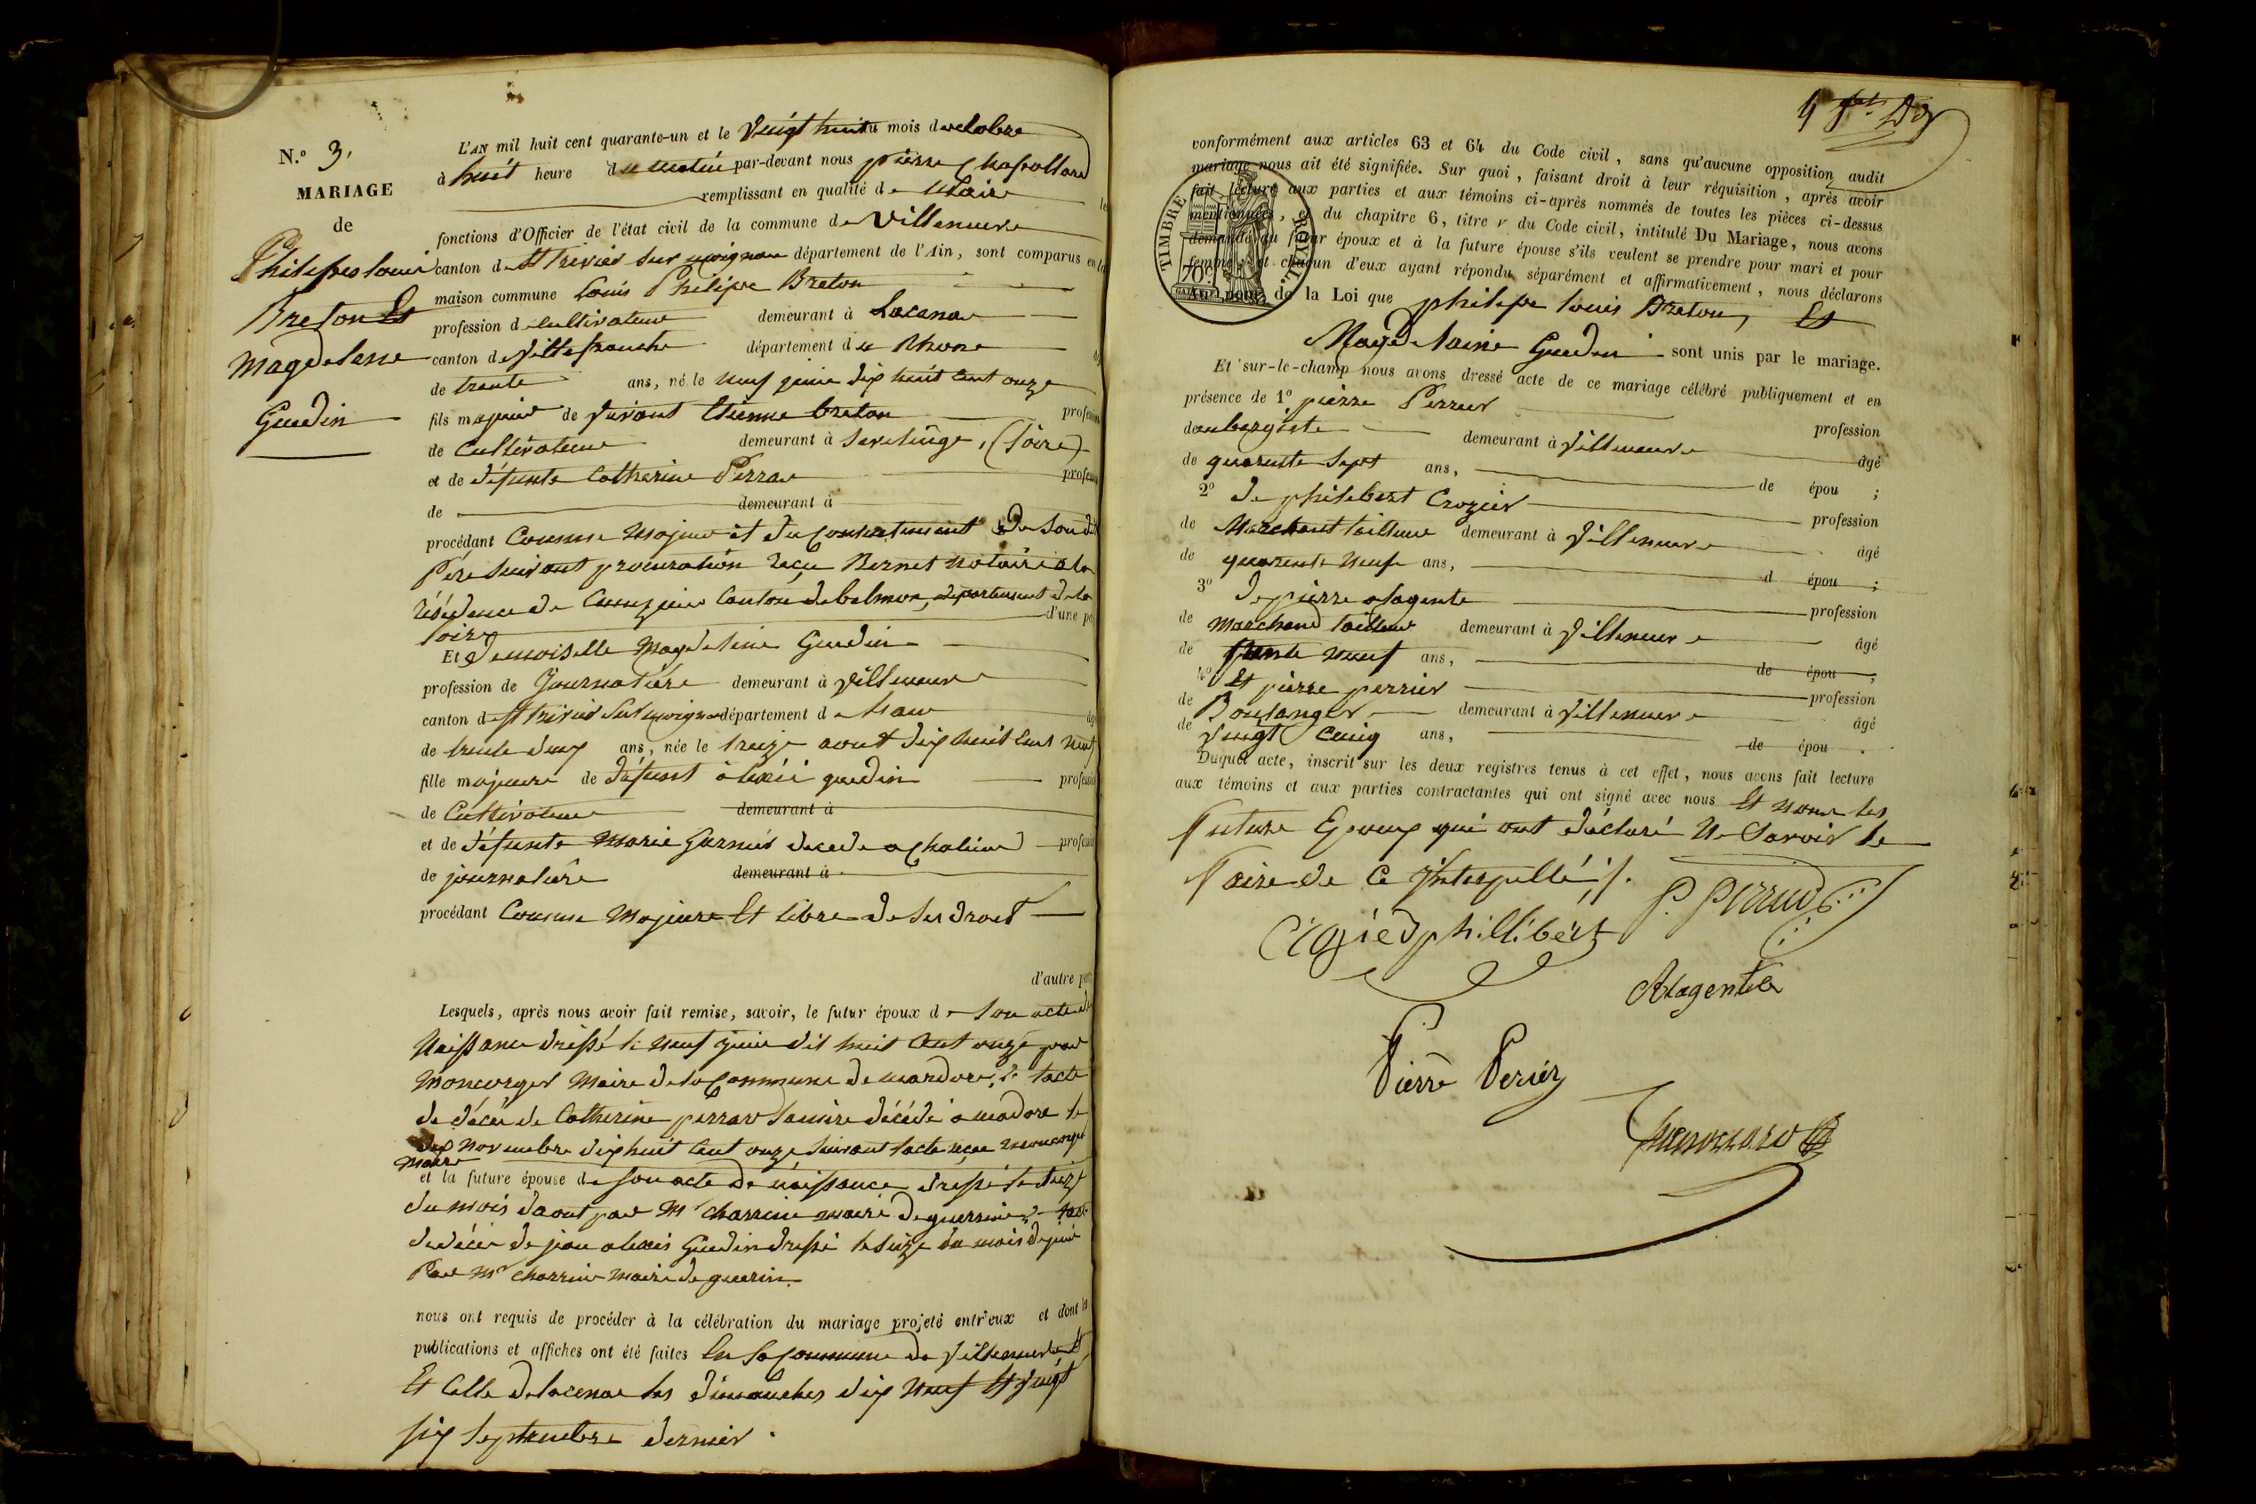 N.o 3,
MARIAGE
de
Philippes louis
Breton Et
Magdelene
Guedin
L'AN mil huit cent quarante-un et le Vingt huit du mois d octobre
à huit heure du matin par-devant nous pierre
remplissant en qualité de Maire
fonctions d'Officier de l'état civil de la commune de Villeneuve
canton de St trivier sur moignan département de l'Ain, sont comparus en la
maison commune Louis Philippe Breton
profession de Cultivateur demeurant à Lacenas
canton de Villefranche département du Rhone
de trente ans, né le neuf juin dix huit cent onze
fils majeur de vivant Etienne breton profession
de Cultivateur demeurant à Sevelinge, (Loire)
et de défunte Catherine Perras profession
de demeurant à
procédant Comme Majeur et du Consentement De Son dit
Pere Suivant procuration reçu Bernet Notaire a la
résidence de Canton de belmon, departement de la
Loire d'une part
Et demoiselle Magdeleine Guedin
profession de Journaliere demeurant à Villeneuve
canton de St trivier Sur moignan département de Lain
de trente deux ans, née le treize aout dix huit cent neuf
fille majeure de défunt alexis guedin profession
de Cultivateur demeurant à
et de défunte Marie Garnier décédé a Chaleins profession
de journaliere demeurant à
procédant Comme Majeure Et libre de Ses droits
d'autre part
Lesquels, après nous avoir fait remise, savoir, le futur époux de Son acte de
Naissance dressé le neuf juin dix huit Cent onze par
Moncorger Maire de la Commune de mardore, & lacte
de décès de Catherine perras Sa mère décédé a madore le
dix Novembre dix huit Cent onze Suivant lacte reçu moncorger
Maire
et la future épouse de Son acte de naissance dressé le treize
du mois daout par Mr charrin maire de guerreins, & lacte
de décès de jean alexis Guedin dressé le Seize du mois de juin
Par Mr Charrin Maire de guerrin
nous ont requis de procéder à la célébration du mariage projeté entr'eux et dont les
publications et affiches ont été faites En la Commune de Villeneuve
Et Celle de lacenas les dimanches dix Neuf Et Vingt
six Septembre dernier.
conformément aux articles 63 et 64 du Code civil, sans qu'aucune opposition audit
mariage nous ait été signifiée. Sur quoi, faisant droit à leur réquisition, après avoir
fait lecture aux parties et aux témoins ci-après nommés de toutes les pièces ci-dessus
mentionnées, et du chapitre 6, titre v du Code civil, intitulé Du Mariage, nous avons
demandé au futur époux et à la future épouse s'ils veulent se prendre pour mari et pour
femme; et chacun d'eux ayant répondu séparément et affirmativement, nous déclarons
Au nom de la Loi que philippe louis Breton, Et
TIMBRE ROYAL
70c
Magdelaine Guedin sont unis par le mariage.
Et sur-le-champ nous avons dressé acte de ce mariage célébré publiquement et en
présence de 1o pierre Perrud profession
d aubergiste demeurant à Villeneuve âgé
de quarente Sept ans, de épou ;
2o De philebert Crozier profession
de Marchant tailleur demeurant à Villeneuve âgé
de quarente neuf ans, d épou ;
3o De pierre alagente profession
de Marchand tailleur demeurant à Villeneuve âgé
de trente neuf ans, de épou ;
4o Et pierre perrier profession
de Boulanger demeurant à Villeneuve âgé
de Vingt Cinq ans, de épou .
Duquel acte, inscrit sur les deux registres tenus à cet effet, nous avons fait lecture
aux témoins et aux parties contractantes qui ont signé avec nous Et Non les
Future Epoux qui ont déclaré Ne Savoir le
Faire de Ce Interpellé ./.
P. Perrud
Crozier phillibert
Alagente
Pierre Perier